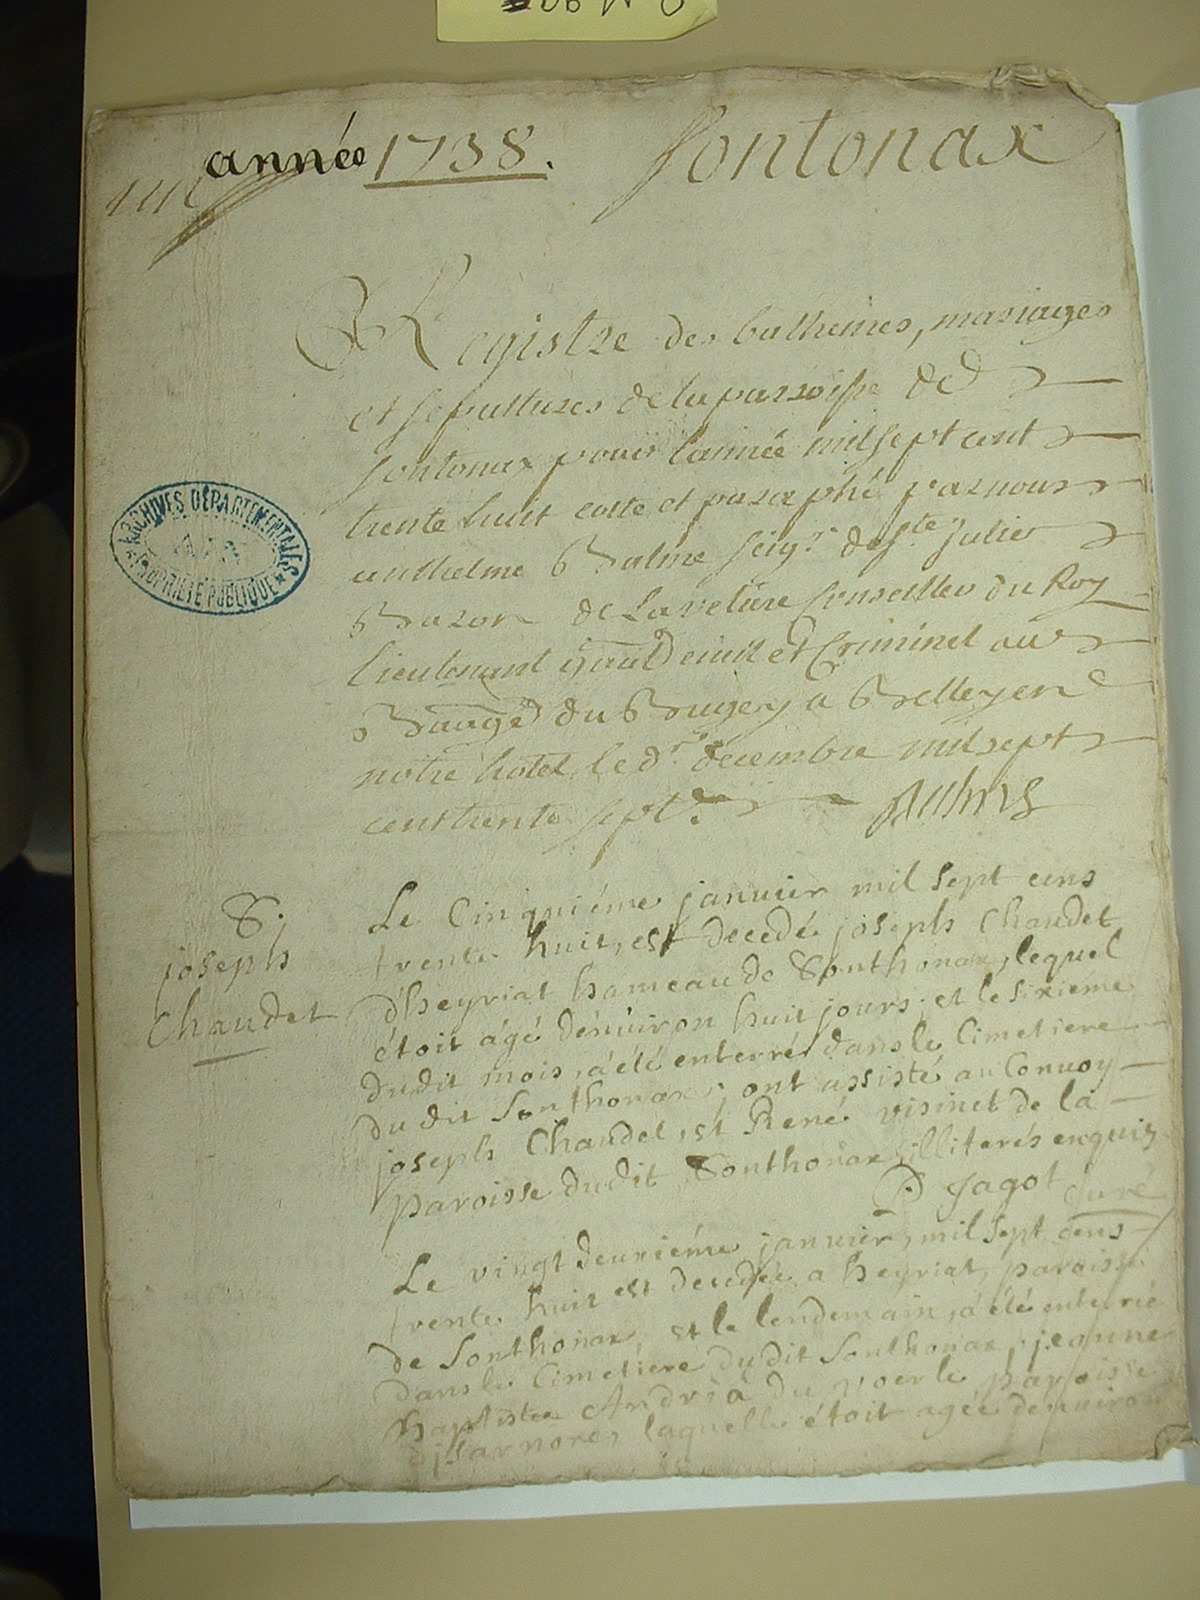 année 1738. Sontonax
Registre des bathemes, mariages
et sepultures de la parroisse de
Sontonax pour l'année mil sept cent
trente huit cotté et paraphé par nous
anthelme Balme seigr. de ste. Julie
Bazon de Laveture Conseiller du Roy
lieutenant civil et Criminel au
Baugé du Bugey a Belley en
notre hotel le dr. decembre mil sept
cent trente sept.
ARCHIVES DÉPARTEMENTALES
AIN
PROPRIÉTÉ PUBLIQUE
S.
joseph
Chaudet
Le Cinquiéme janvier mil sept cens
trente huit, est decedé joseph Chaudet
d'heyriat hameau de Sonthonax, lequel
étoit agé d'énviron huit jours, et le sixiéme
dudit mois, a été enterré dans le Cimetiere
dudit Sonthonax; ont assisté au Convoy
joseph Chaudet, et René visinet de la
paroisse dudit Sonthonax illiterés enquis
Jagot Curé
Le vingt deuxiéme janvier, mil sept cens
trente huit est decedée a heyriat, paroisse
de Sonthonax, et le lendemain, a été enterrée
dans le Cimetiere dudit Sonthonax, jeanne
baptiste Andréa du paroisse
d'jsarnore, laquelle étoit agée d'enuiron